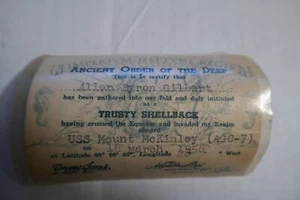 ANCIENT ORDER OF THE DEEP
This is to certify that
Allen Byron Gilbert
has been gathered into our fold and duly initiated
as a
TRUSTY SHELLBACK
having crossed the Equator and invaded my Realm
aboard
USS Mount McKinley (AGC-7)
on 16 March 1958
at Latitude 00° 00' 00", Longitude West